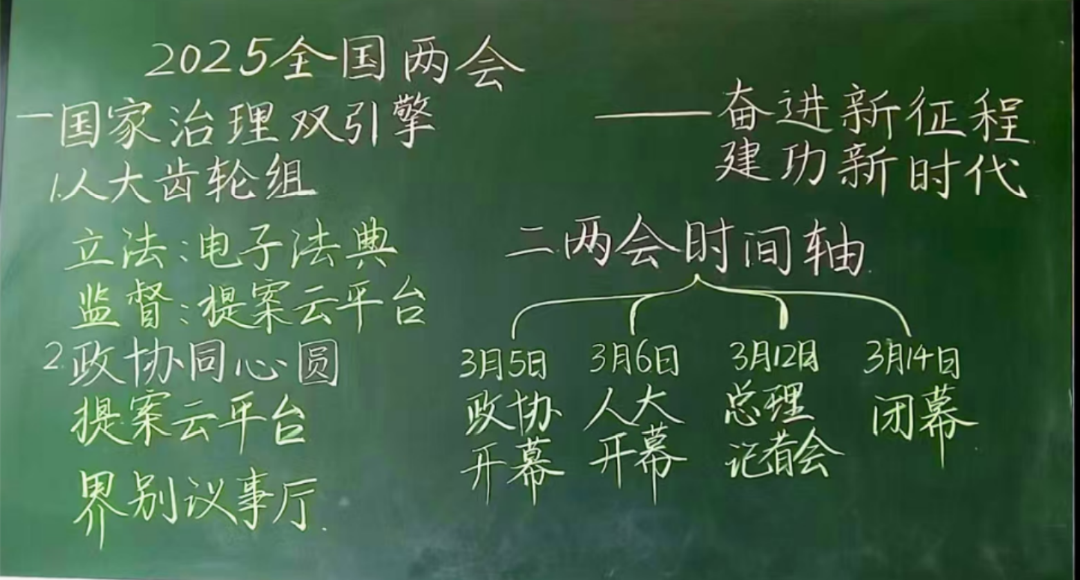 2025全国两会
——奋进新征程
建功新时代
一国家治理双引擎
1.人大齿轮组
立法:电子法典
监督:提案云平台
2.政协同心圆
提案云平台
界别议事厅.
二.两会时间轴
3月5日 3月6日 3月12日 3月14日
政协 人大 总理 闭幕
开幕 开幕 记者会